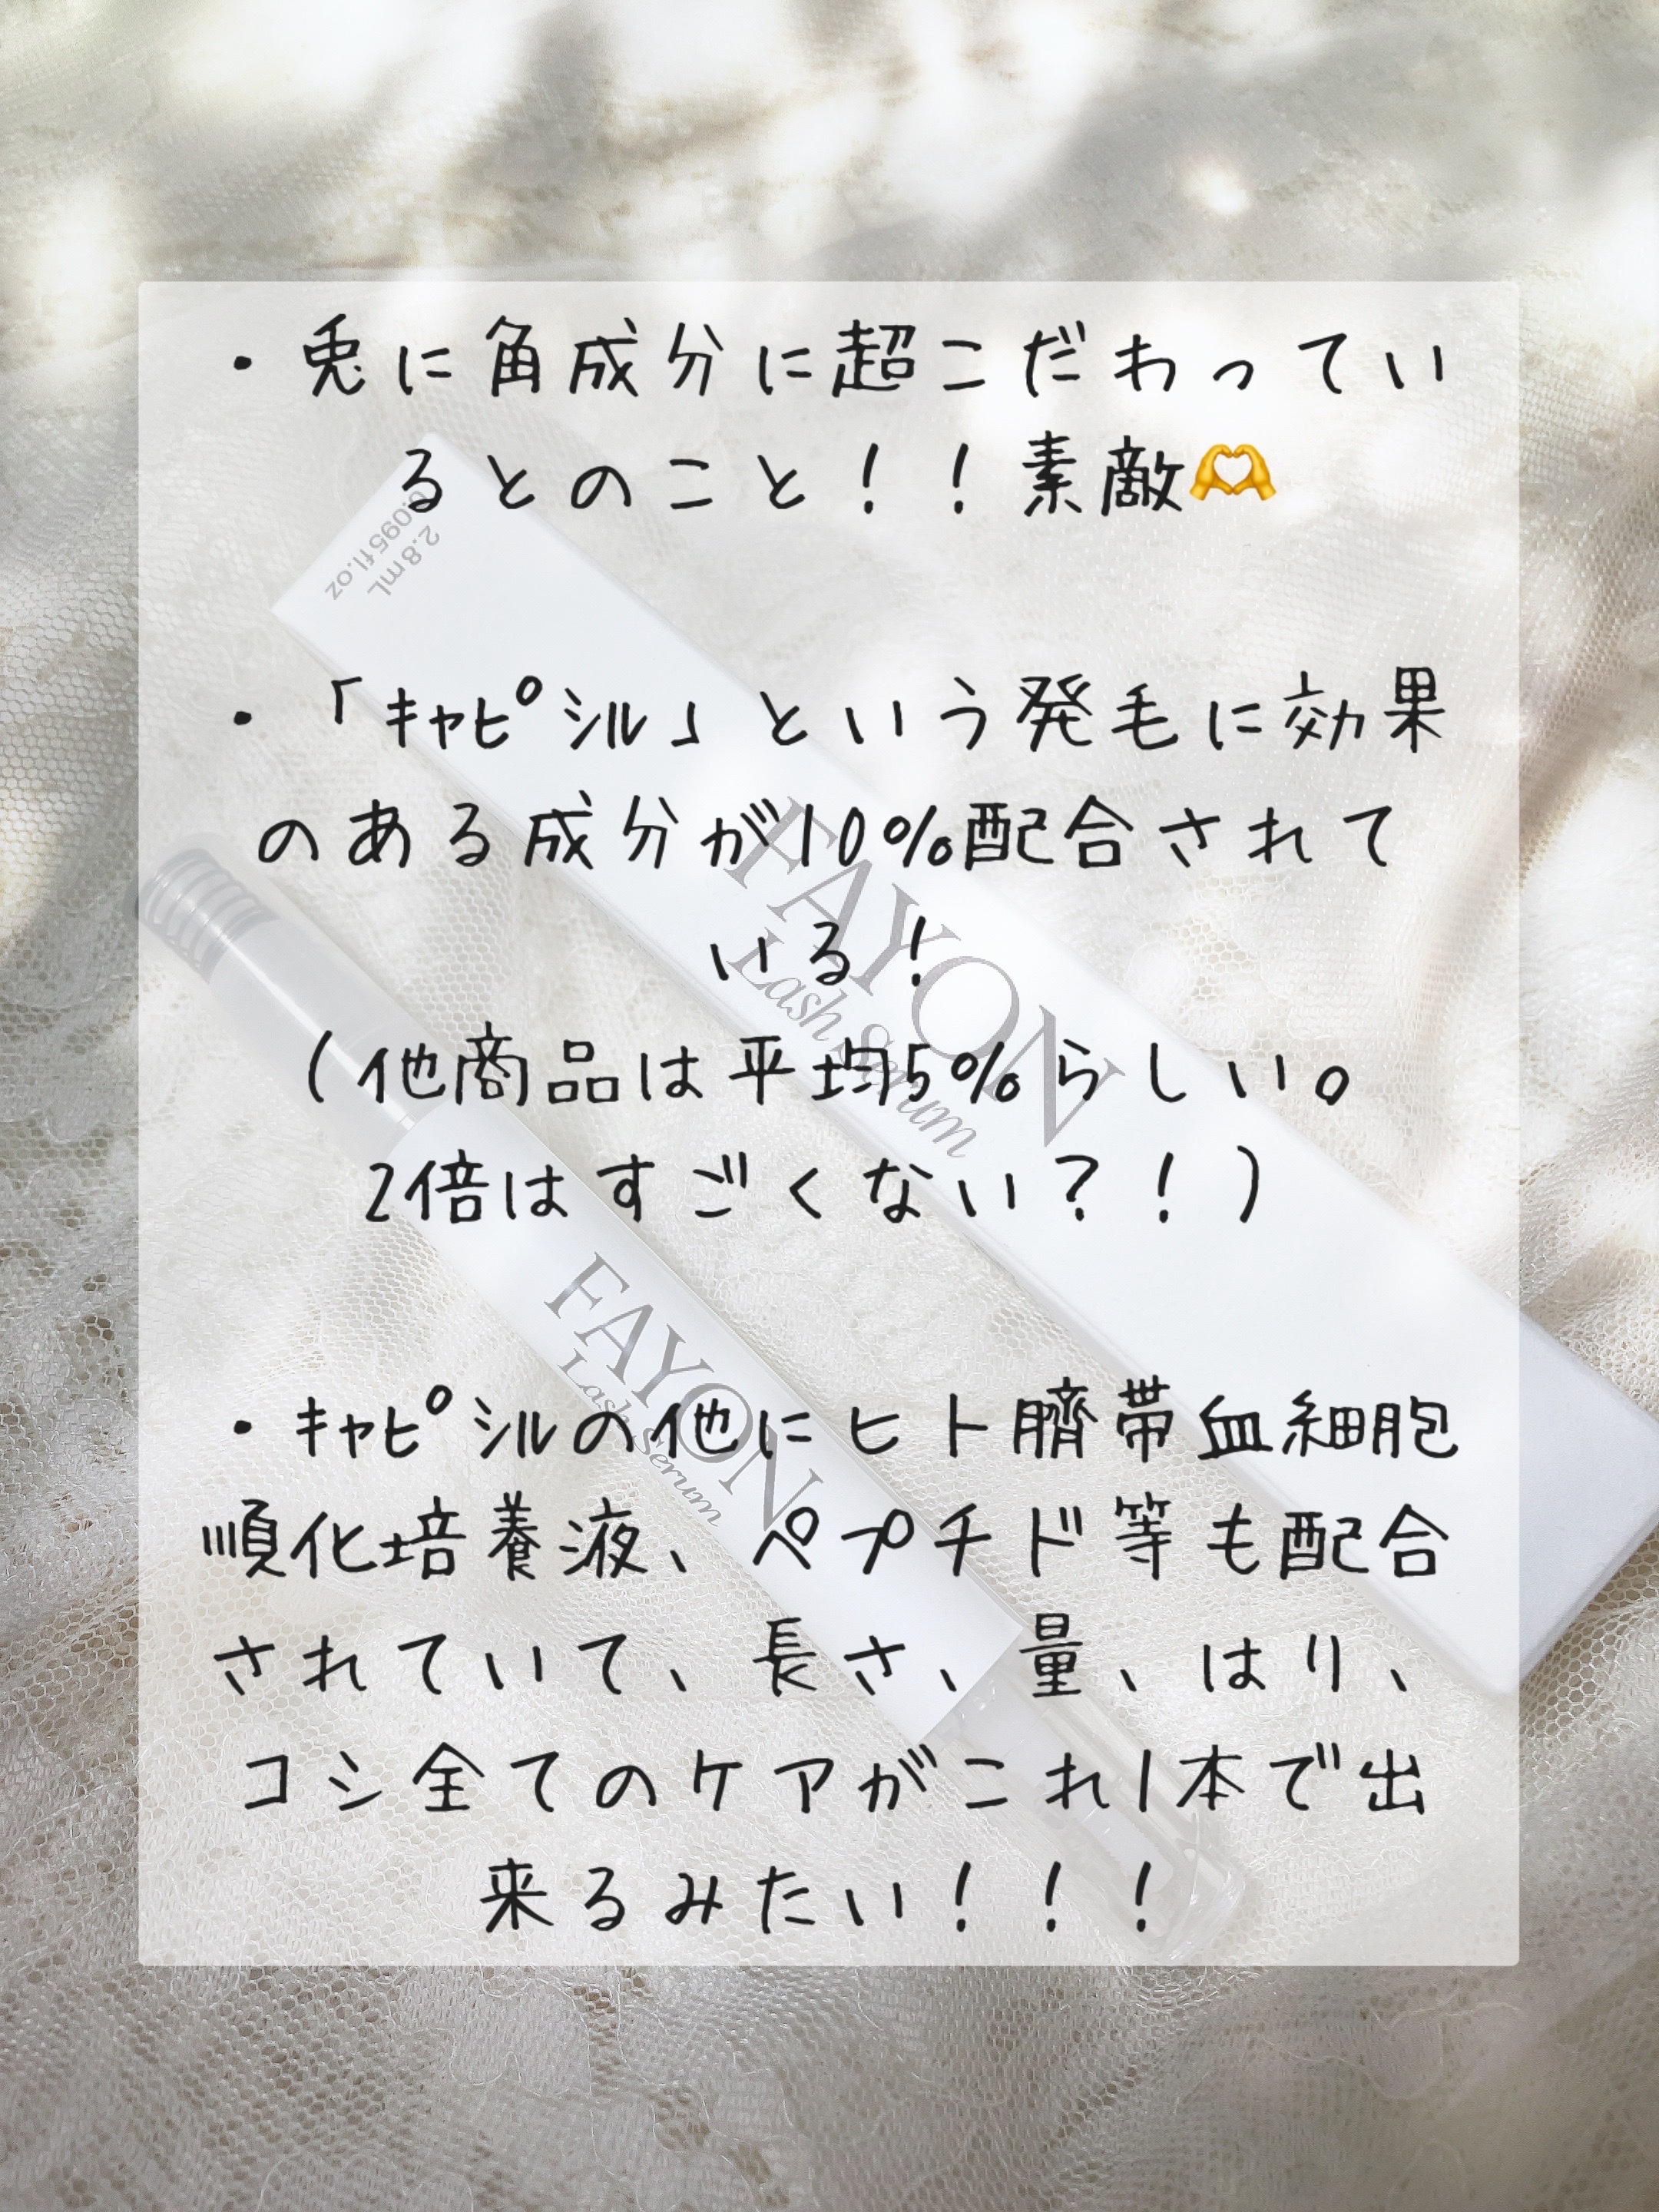 ・兎に角成分に超こだわってい
るとのこと！！素敵🫶
・「ｷｬﾋﾟｼﾙ」という発毛に効果
のある成分が10%配合されて
いる！
(他商品は平均5%らしい。
2倍はすごくない？！)
・ｷｬﾋﾟｼﾙの他にヒト臍帯血細胞
順化培養液、ペプチド等も配合
されていて、長さ、量、はり、
コシ全てのケアがこれ1本で出
来るみたい！！！
0.095fl.oz
2.8mL
FAYON
Lash Serum
FAYON
Lash Serum